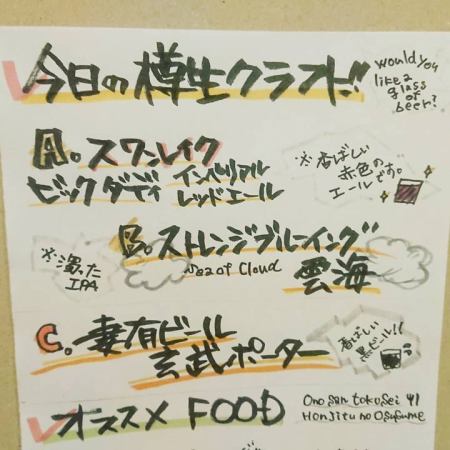 今日の樽生クラフト!!
would you
like a
glass
of
beer?
A. スワンレイク
ビックダディ インペリアル
レッドエール
※香ばしい
赤色の
エールです。
B. ストレンジブルーイング
Sea of Cloud 雲海
※濁った
IPA
C. 妻有ビール
玄武ポーター
香ばしい
黒ビール!!
オススメ FOOD
Ono san tokusei
Honjitu no Osusume